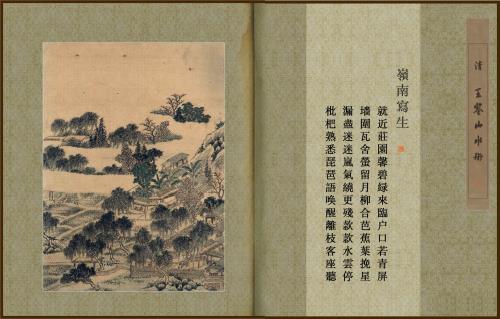 嶺南寫生
就近莊園馨碧緑來臨户口若青屏
墻圍瓦舍螢留月柳合芭蕉葉挽星
漏盡迷迷嵐氣繞更殘款款水雲停
枇杷熟悉琵琶語唤醒離枝客座聽
清 王翚山水册